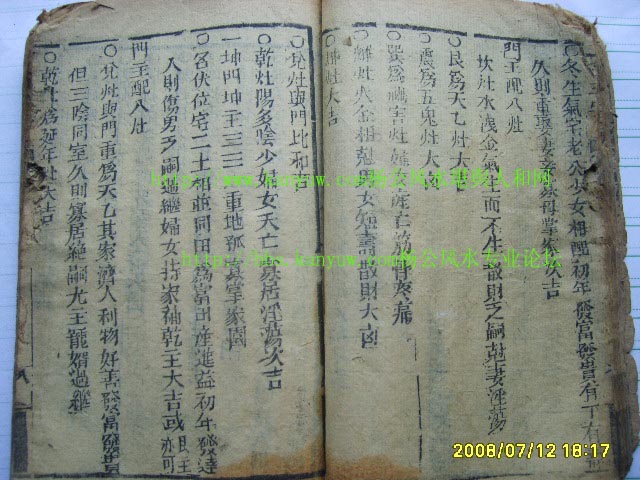 ○名生氣宅老公少女相配初年發富發貴有丁有
久則重娶妻
次吉
門主配八灶
坎灶水淺金氣生而不生敗財乏嗣尅妻淫蕩
○艮為天乙灶大吉
○震為五鬼灶大凶
○巽為禍害灶
痛
○離灶火金相尅
女短壽敗財大凶
○坤灶大吉
○兌灶與門比和吉
○乾灶陽多陰少婦女夭亡寡居淫蕩次吉
一坤門坤主三三二重地孤寡掌家園
○名伏位宅二土相重同田為富田產進益初年發達
久則傷男乏嗣過継婦女持家補乾主大吉或艮主亦可
門主配八灶
○兌灶與門重為天乙其家濟人利物好善發富發貴
但三陰同室久則寡居絕嗣尤主寵婿過継
○乾灶為延年灶大吉
http://bbs.kanyuw.com杨公风水专业论坛
2008/07/12 18:17